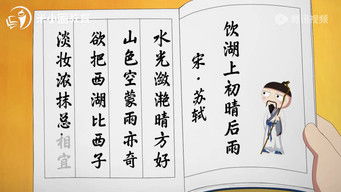 腾讯视频
饮湖上初晴后雨
宋·苏轼
水光潋滟晴方好
山色空蒙雨亦奇
欲把西湖比西子
淡妆浓抹总相宜